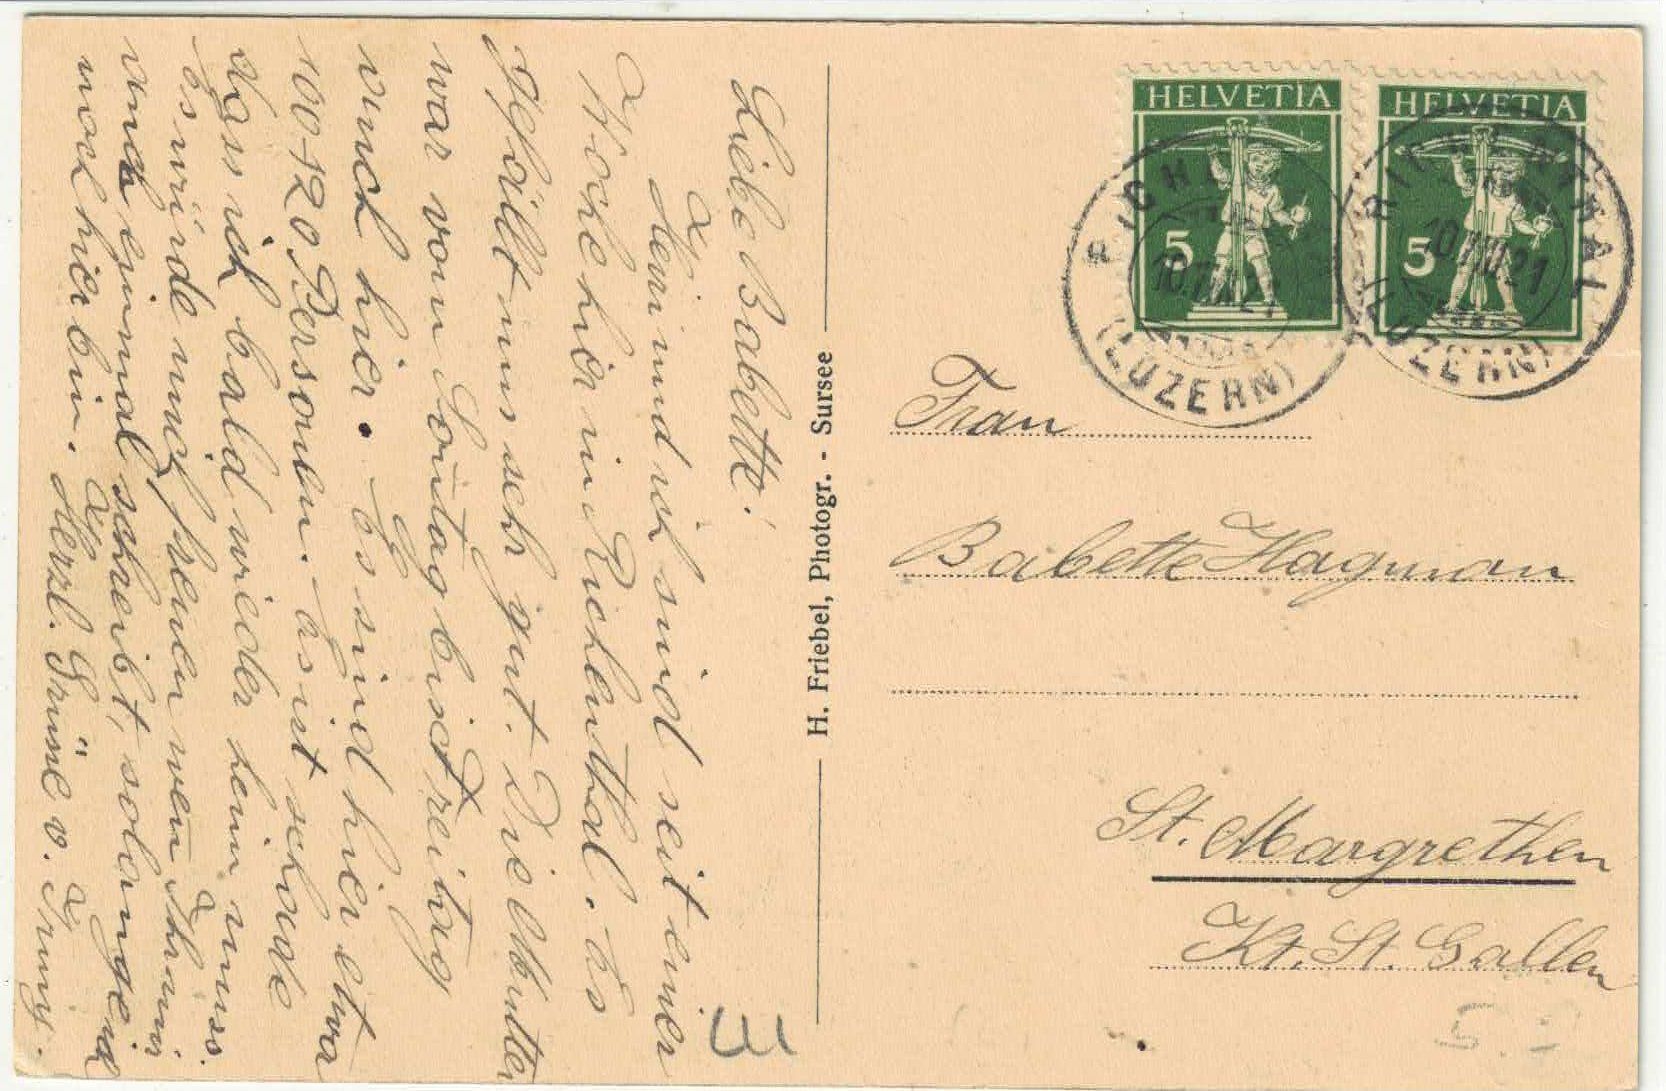 Liebe Babette!
Heini und ich sind seit einer
Woche hier in Richenthal. Es
gefällt uns sehr gut. Die Mutter
war vom Sontag bis Freitag
auch hier. Es sind hier etwa
100-120 Personen. Es ist schade
dass ich bald wieder heim muss.
Es würde mich freuen wen Ihr mir
auch einmal schreibt, solange ich
noch hier bin. Herzl. Grüsse v.
H. Friebel, Photogr. - Sursee
HELVETIA
5
HELVETIA
5
RICHENTHAL
10.VIII.21
(LUZERN)
RICHENTHAL
10.VIII.21
(LUZERN)
Frau
Babette Hagman
St. Margrethen
Kt. St. Gallen
5.-